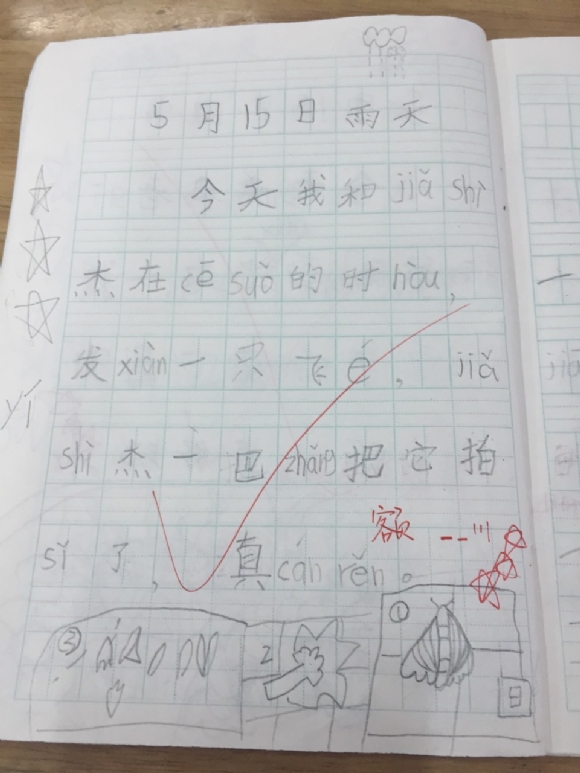 5月15日雨天
今天我和jiǎ shì
杰在cè suǒ的时hòu,
发xiàn一只飞é, jiǎ
shì杰一巴zhǎng把它拍
sǐ了,真cán rěn。
额---!!!
yí
① 日
2
③